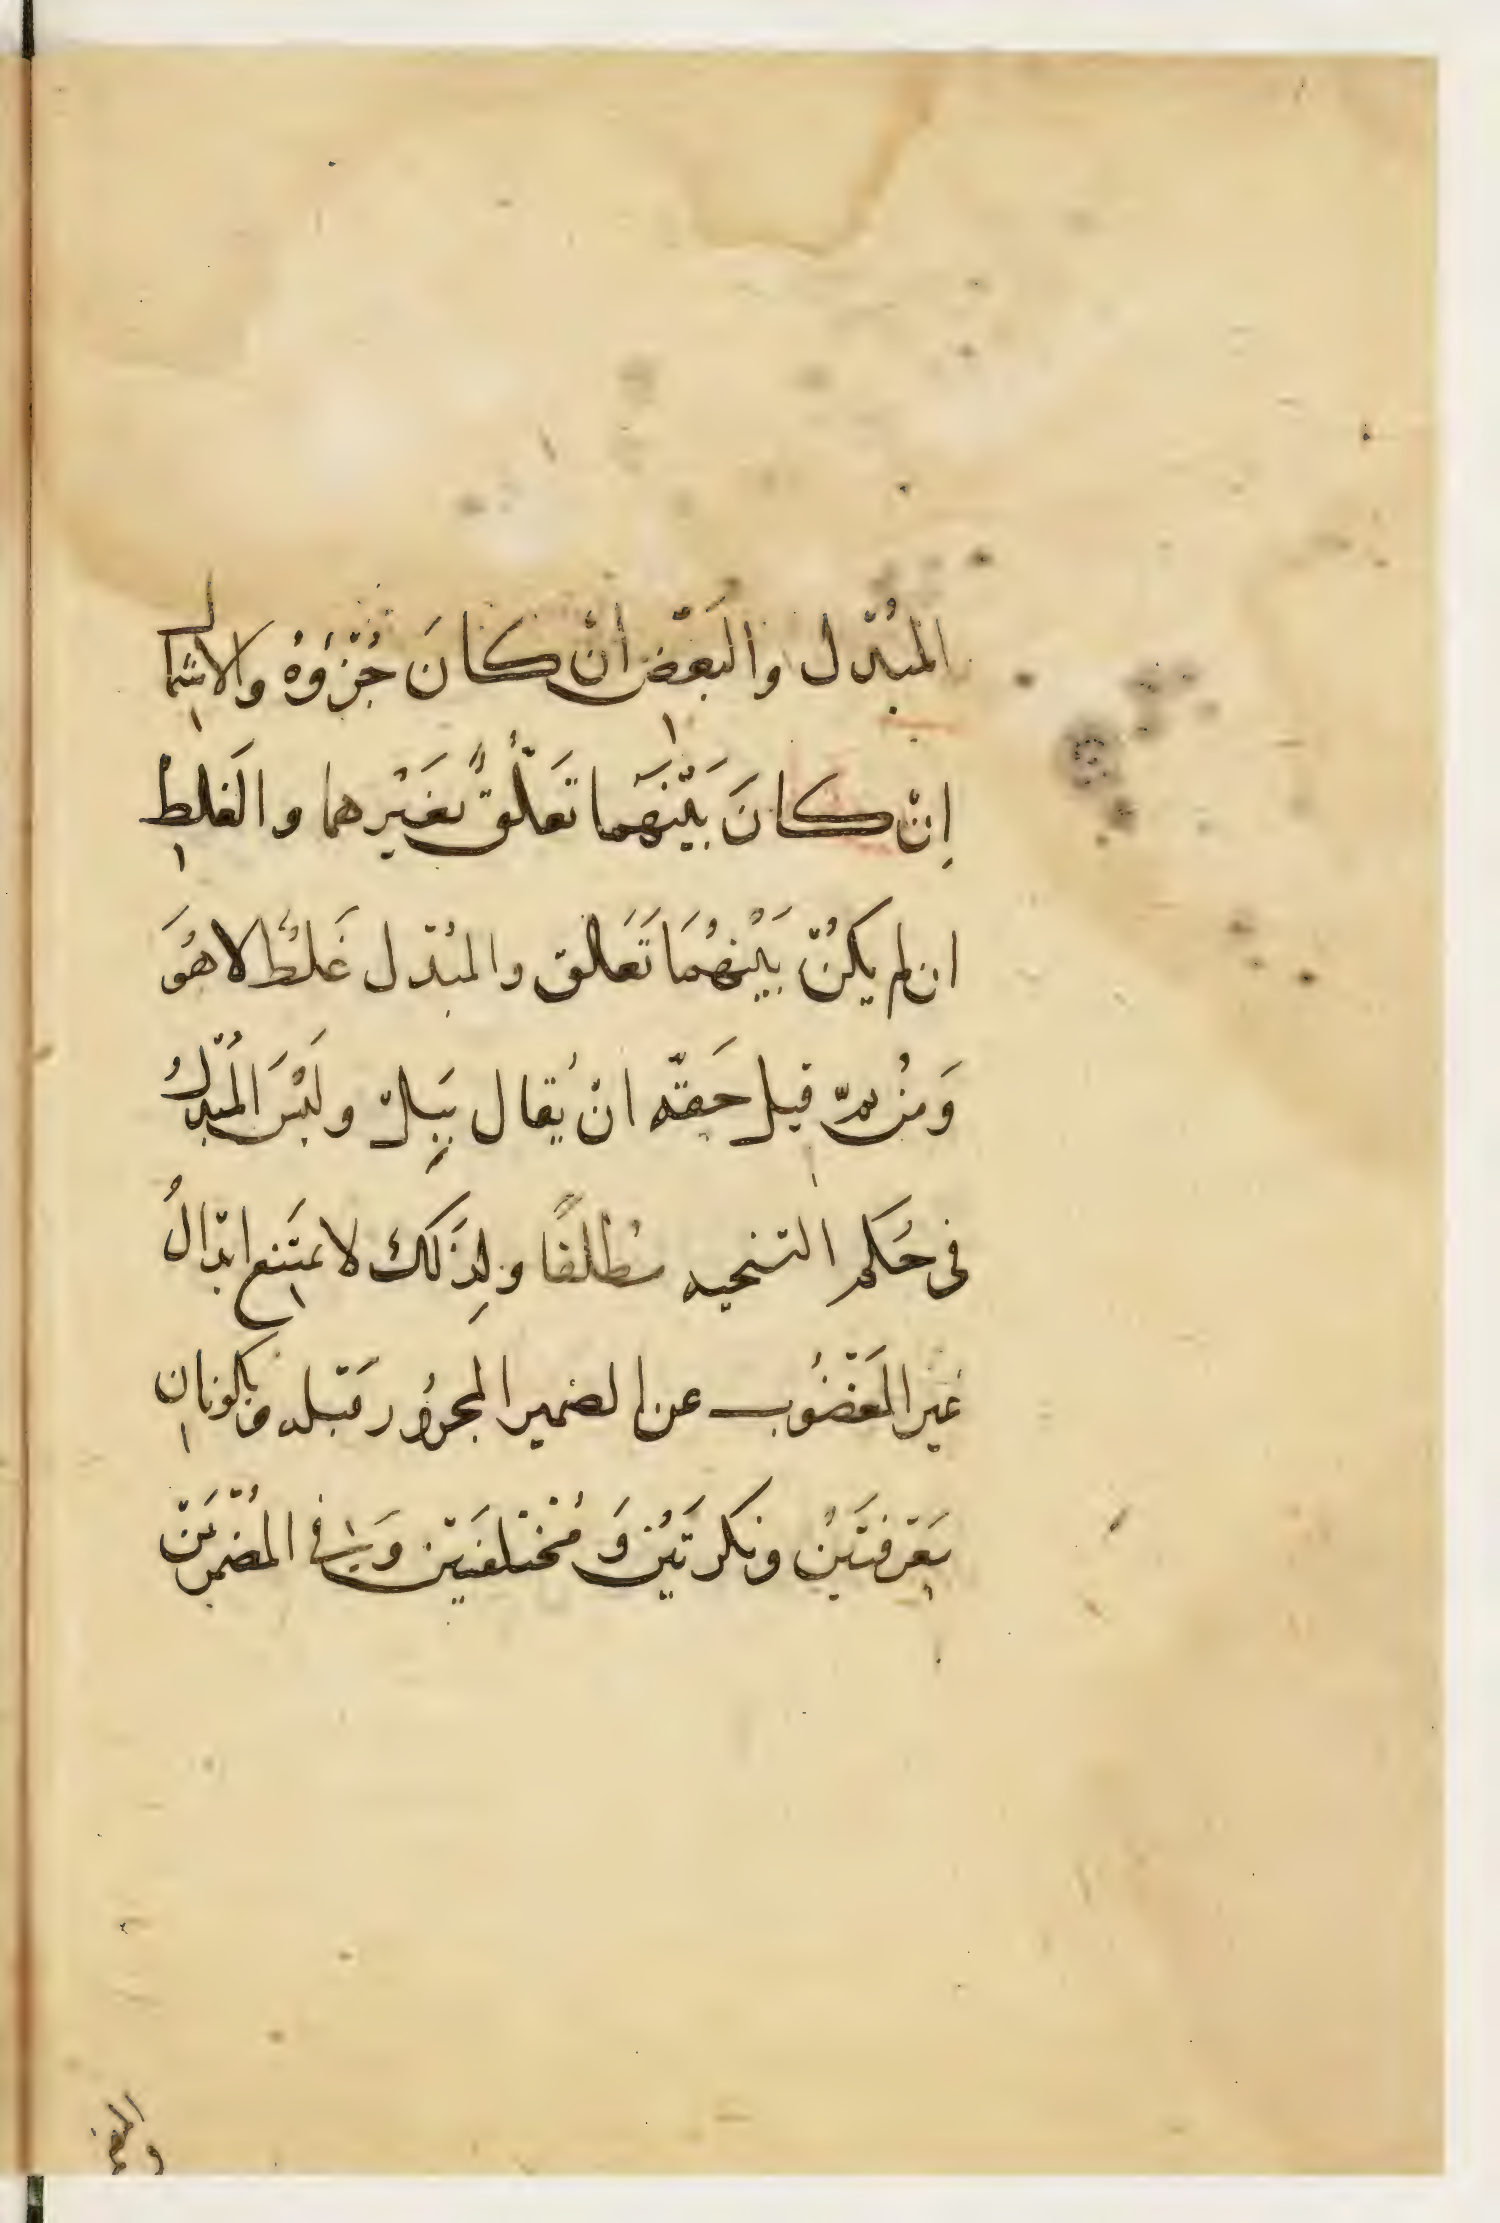 المُبْدَل والبَعْض انْ كانَ جُزْؤهُ والاشتمال
اِنْ كانَ بَيْنَهَما تَعَلُّقٌ بغَيْرهما والغَلط
ان لم يكُنْ بَيْنهُمَا تَعَلق والمُبْدَل غَلطٌ لا هُوَ
وَمنْ قيل حَقّه انْ يُقال بِبَلْ ولَيْسَ المُبْدَلُ
فى حُكم التنحيه مُطلقًا ولِذَلكَ لا يمتَنع ابْدَالُ
غير المَغْضُوب عن الضمير المجرُور قَبْله ويكونان
مَعْرفتَيْن ونكرتَيْن وَمُخْتلفَيْن وَفى المُضْمَرَيْن